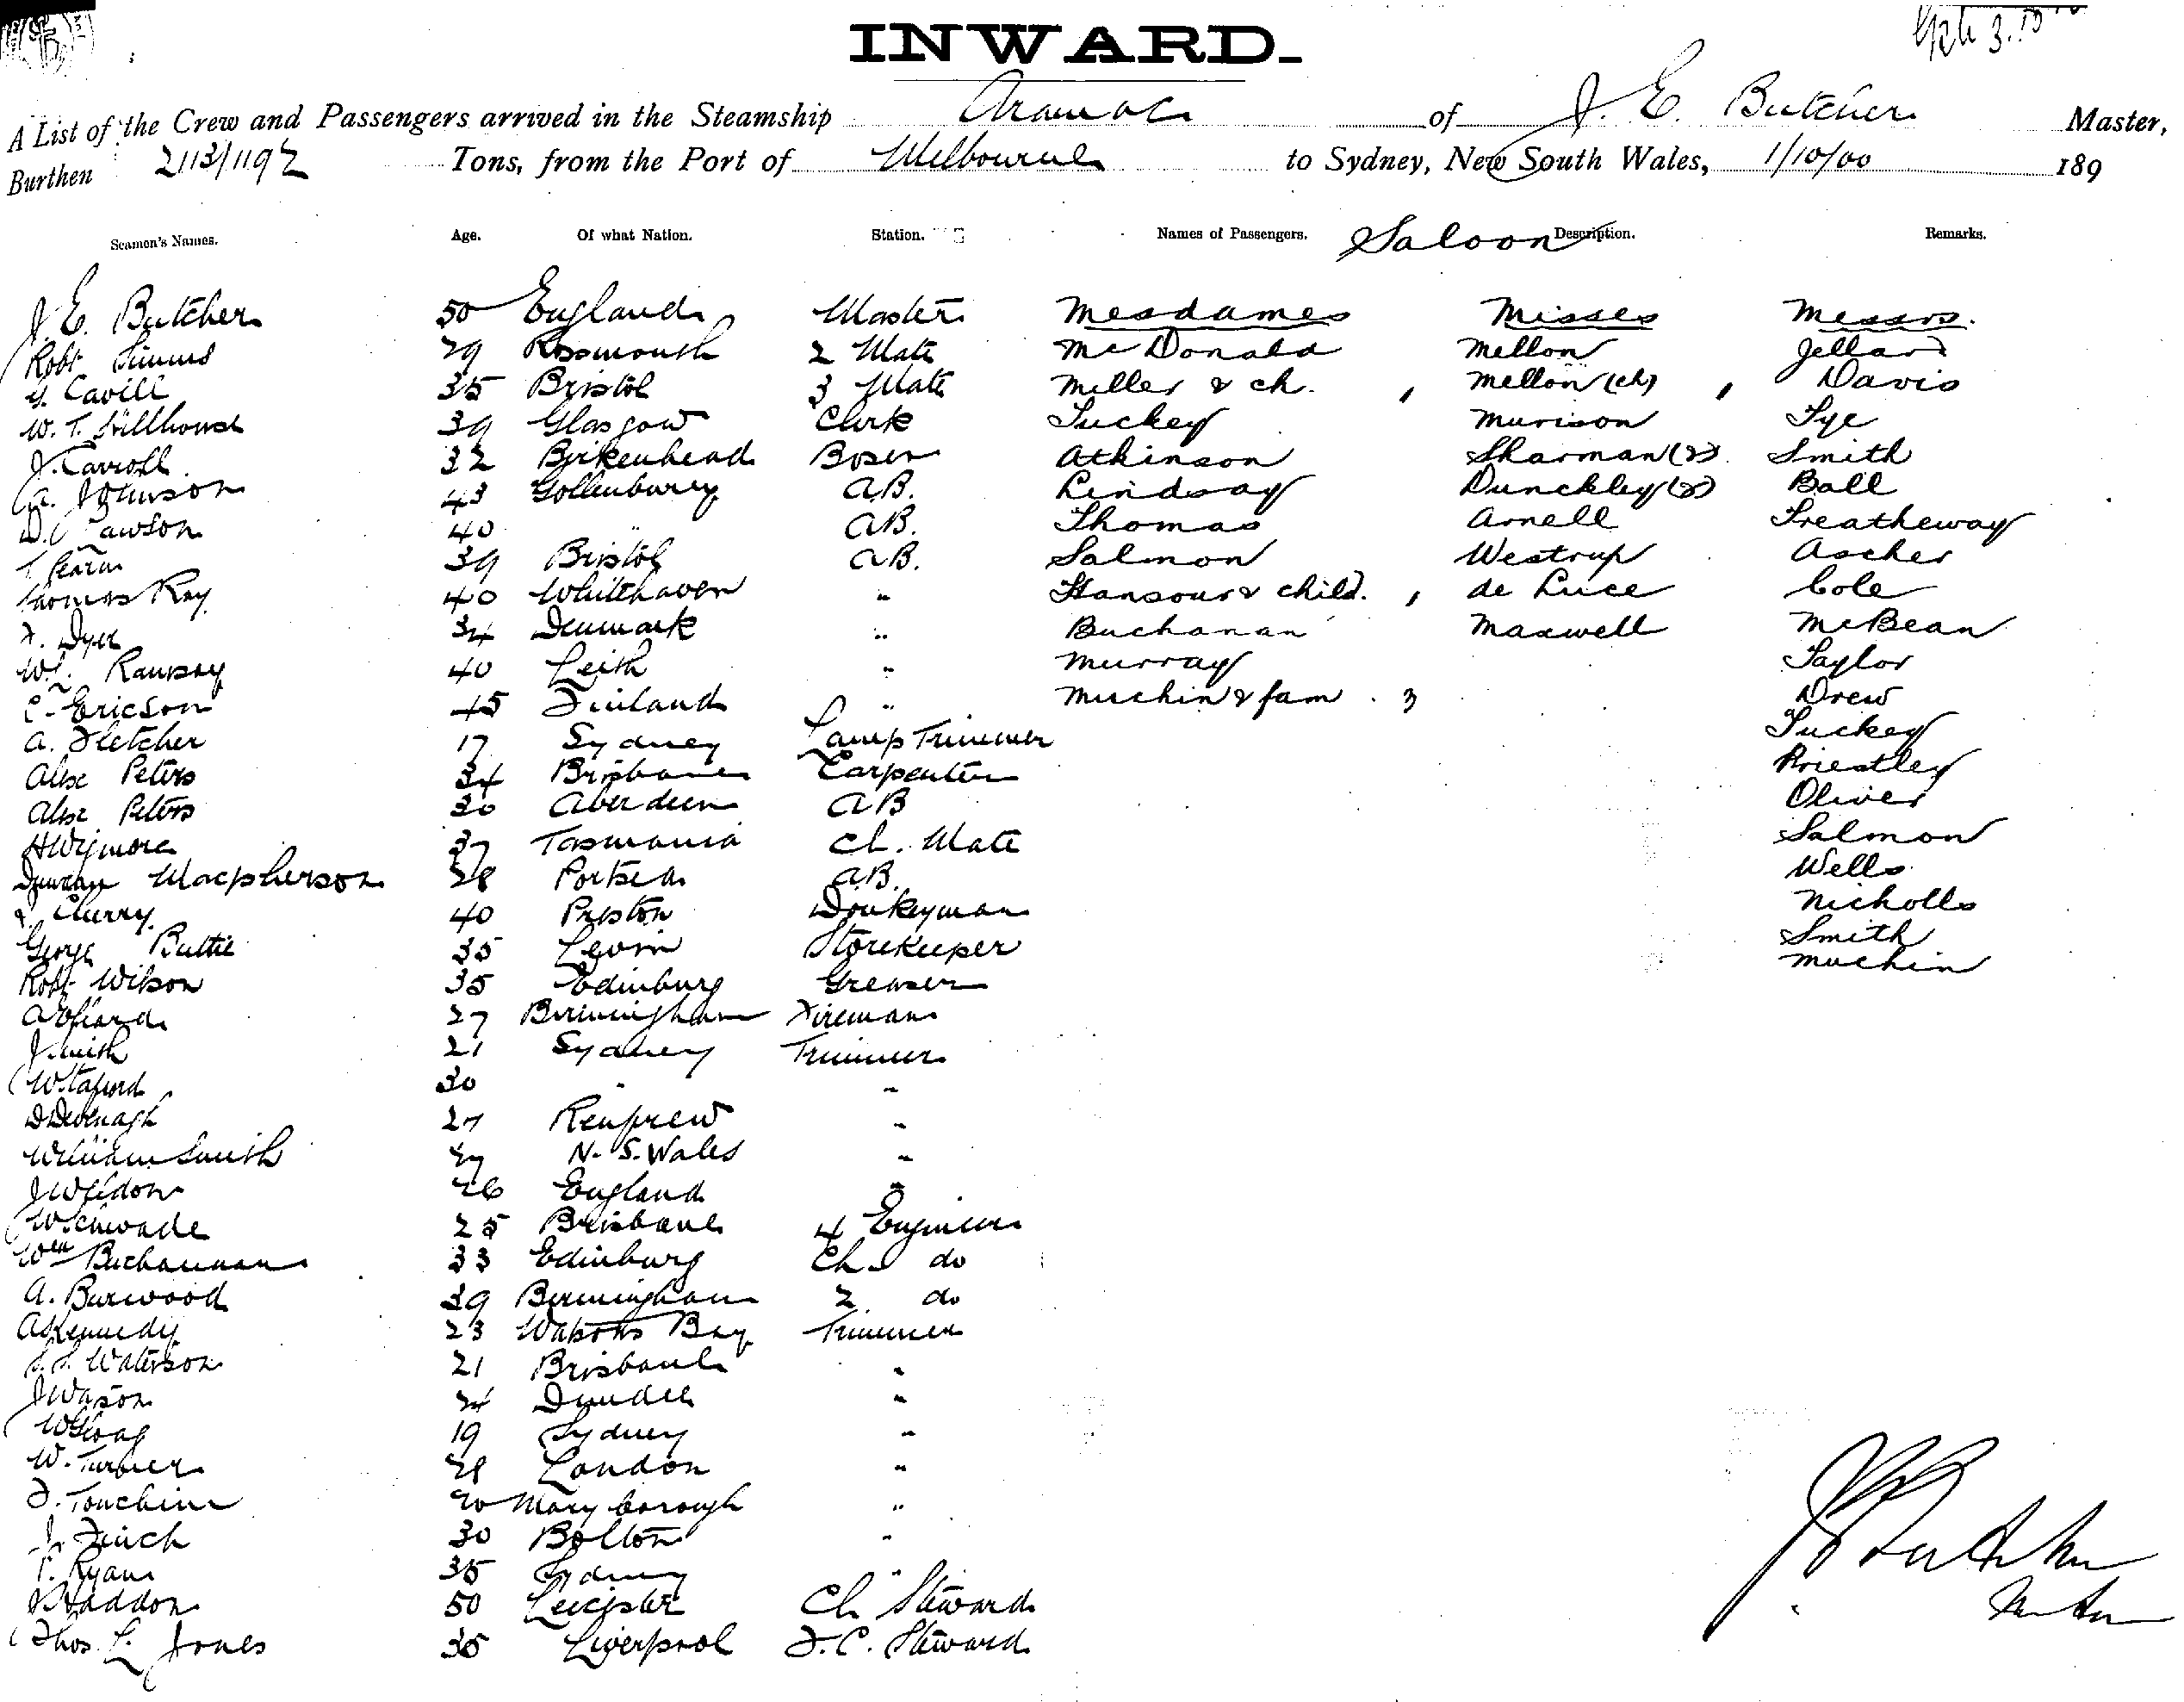 INWARD.
A List of the Crew and Passengers arrived in the Steamship Aramac of J. E. Butcher Master,
Burthen 2113/1192 Tons, from the Port of Melbourne to Sydney, New South Wales, 1/10/00 189
Seamen's Names. Age. Of what Nation. Station. Names of Passengers. Saloon Description. Remarks.
J. E. Butcher 50 England Master Mesdames Misses Messrs.
Robt Simms 29 2 Mate McDonald Mellon Jellard
G. Cavill 35 Bristol 3 Mate Miller & ch. , Mellon (ch) , Davis
W. T. Hillhouse 39 Glasgow Clerk Tuckey Murison Tye
J. Carroll 32 Birkenhead Bosen Atkinson Sharman (2) Smith
A. Johnson 43 A.B. Lindsay Dunckley (2) Ball
Lawson 40 " A.B. Thomas Arnell Treatheway
39 Bristol A.B. Salmon Westrup Ascher
Thomas Ray 40 Whitehaven " Hansour & child. , de Luce Cole
F. Dyer 34 Denmark " Buchanan Maxwell McBean
Wm. Ramsay 40 Leith " Murray Taylor
C. Ericson 45 Finland " Muchin & fam . 3 Drew
A. Fletcher 17 Sydney Lamp Trimmer Tuckey
Alex Peters 34 Brisbane Carpenter Priestley
Alex Peters 30 Aberdeen AB Oliver
H Wigmore 37 Tasmania Ch. Mate Salmon
Duncan Macpherson 28 Portsea A.B. Wells
Cherry 40 Preston Donkeyman Nicholls
George Buttie 35 Storekeeper Smith
Robt Wilson 35 Edinburg Greaser Muchin
27 Birmingham Fireman
J. Smith 21 Sydney Trimmer
30 " "
D Devenagh 27 Renfrew "
William Smith 27 N. S. Wales "
J Weldon 26 England "
25 Brisbane 4 Engineer
Wm Buchannan 33 Edinburg Ch. do
A. Burwood 39 Birmingham 2 do
A Kennedy 23 Watsons Bay Trimmer
Waterson 21 Brisbane "
J Watson 24 Dundee "
19 Sydney "
W. Turner 28 London "
20 Maryborough "
J. Finch 30 Bolton "
P. Ryan 35 Sydney "
J Haddon 50 Leicester Ch. Steward
Thos. L. Jones 35 Liverpool F.C. Steward
J E Butcher
Master